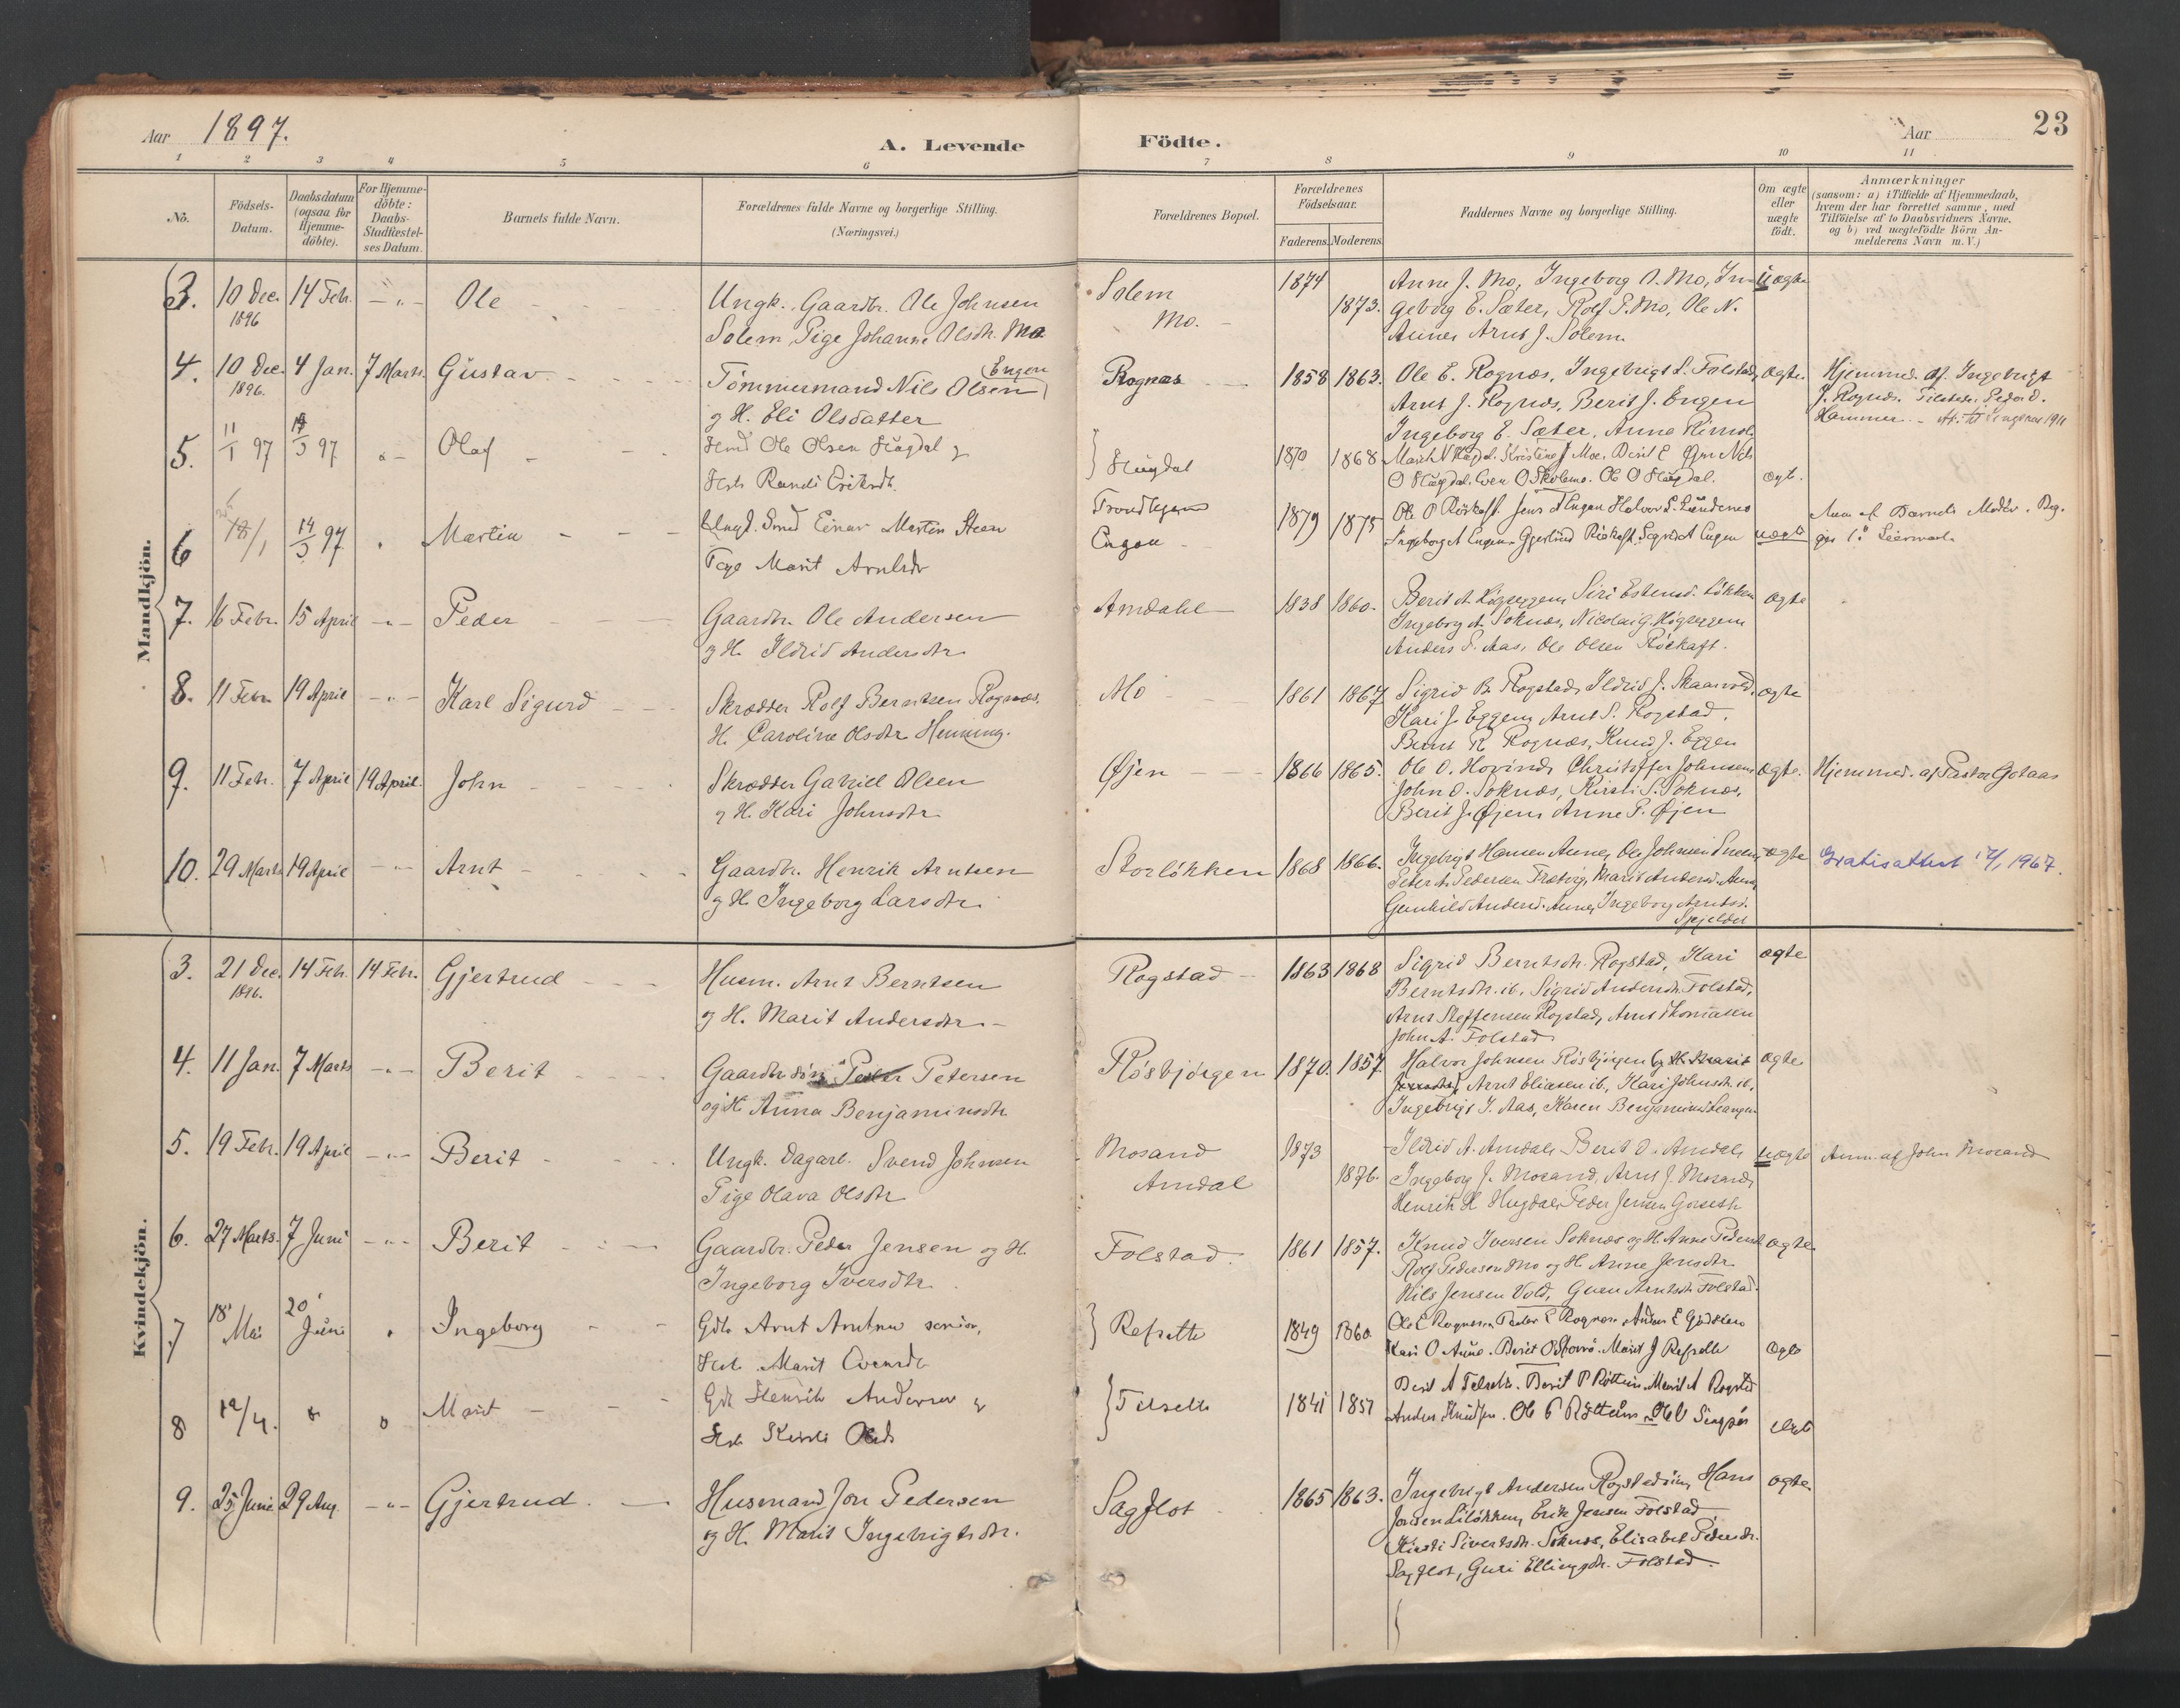 Aar 1897.
A. Levende Födte.
Aar
23
1 2 3 4 5 6 7 8 9 10 11
No.
Födsels-Datum.
Daabsdatum (ogsaa for Hjemme-döbte).
For Hjemme-döbte: Daabs-Stadfæstel-ses Datum.
Barnets fulde Navn.
Forældrenes fulde Navne og borgerlige Stilling. (Næringsvei.)
Forældrenes Bopæl.
Forældrenes Födselsaar.
Faderens. Moderens.
Faddernes Navne og borgerlige Stilling.
Om ægte eller uægte födt.
Anmærkninger (saasom: a) i Tilfælde af Hjemmedaab, hvem der har forrettet samme, med Tilföielse af to Daabsvidners Navne. og b) ved uægtefödte Börn An-melderens Navn m. V.)
Mandkjön.
3. 10 Dec. 1896 14 Feb. -"- Ole
Ungk. Gaardbr. Ole Johnsen
Solem, Pige Johanne Olsdtr. Mo.
Solem
Mo.
1874 1873.
Anne J. Mo, Ingeborg O. Mo, In-
geborg E. Sæter, Rolf P. Mo, Ole N.
Aunes Arnt J. Solem
uægte
4. 10 Dec. 1896. 4 Jan. 7 Marts. Gustav
Tömmermand Nils Olsen Engen
og H. Eli Olsdatter
Rognæs
1858 1863.
Ole E. Rognæs, Ingebrigt S. Folstad,
Arnt J. Rognæs, Berit J. Engen
Ingeborg E. Sæter, Anne Rimol
ægte.
Hjemmed. af Ingebrigt
J. Rognæs. Tilstede: Peder O.
Hammer.
5. 11/1 97 97 Olaf
Ole Olsen Hugdal og
Randi Eriksdt.
Hugdal
1870 1868
Marit N Hugdal. Kristine J Moe. Berit E Nils
O Hugdal. Even O Skolemo. Ole O Hugdal.
ægt.
6 18/1 14/3 97 Martin
Ungk. Smed Einar Martin Steen
Pige Marit Arntsdr
Trondhjem
Engen
1879 1875
Ole P Rörkaft. Jens A Engen Halvor S. Lundemo
Ingeborg A Engen Gjertrud Röskaft. Sigrid A Engen
uægt
Anm af Barnets Moder.
7. 16 Febr. 15 April -"- Peder
Gaardbr. Ole Andersen
og H. Ildrid Andersdtr.
Amdahl
1838 1860.
Berit A. Högseggen, Siri Estensd. Lökken
Ingeborg A. Soknæs, Nicolai G. Högseggen
Anders S. Aas, Ole Olsen Röskaft.
ægte
8. 11 Febr. 19 April -"- Karl Sigurd
Skrædder Rolf Berntsen Rognæs.
H. Caroline Olsdtr. Henning.
Mo
1861 1867
Sigrid B. Rogstad, Ildrid J. Skaarvold,
Kari J. Eggen, Arnt S. Rogstad,
Bernt R Rognæs, Knud J. Eggen
ægte
9. 11 Feb. 7 April 19 April. John
Skrædder Gabriel Olsen
og H. Kari Johnsdtr.
Øjen
1866 1865.
Ole O. Hovind, Christoffer Johnsen
John O. Soknæs, Kirsti S. Soknæs,
Berit J. Øjen, Anne P. Øjen
ægte.
Hjemmed. af Pastor Gotaas
10. 29 Marts 19 April -"- Arnt
Gaardbr. Henrik Arntsen
og H. Ingeborg Larsdtr.
Storlökken
1868 1866.
Ingebrigt Hansen Aunes, Ole Johnsen Sneen,
Peter A. Pedersen Træthig, Marit Andersd. Aunes
Gunhild Andersd. Aunes, Ingeborg Arntsd.
Spjeldet
ægte
Gratisattest 1967.
Kvindekjön.
3. 21 Dec. 1896. 14 Feb. 14 Feb. Gjertrud
Husm. Arnt Berntsen
og H. Marit Andersdtr.
Rogstad
1863 1868
Sigrid Berntsdtr. Rogstad, Kari
Berntsdtr. ib., Sigrid Andersdtr. Folstad,
Arnt Steffensen Rogstad, Arnt Thomasen
John A. Folstad
ægte
4. 11 Jan. 7 Marts -"- Berit
Gaardbr. sön Peder Petersen
og H. Anna Benjaminsdtr
Rösbjörgen
1870. 1857.
Halvor Johnsen Rösbjörgen og H. Marit
Arnt Eliasen ib., Kari Johnsdtr. ib.
Ingebrigt J. Aas, Karen Benjaminsd. Leangen
ægte
5. 19 Febr. 19 April -"- Berit
Ungk. Dagarb. Svend Johnsen
Pige Olava Olsdtr
Mosand
Amdal
1873 1876.
Ildrid A. Amdal, Berit O. Amdal,
Ingeborg J. Mosand, Arnt J. Mosand,
Henrik H. Hugdal, Peder Jensen Gorseth
uægte
Anm. af John Mosand
6. 27 Marts. 7 Juni -"- Berit
Gaardbr. Peder Jensen og H.
Ingeborg Iversdtr.
Folstad.
1861 1857.
Knud Iversen Soknæs og H. Anne Pedersdt
Rolf Pedersen Mo og H. Anne Jensdtr.
Nils Jensen Vold, Guru Arntsdtr. Folstad.
ægte.
7 18 Mai 20 Juni Ingeborg
Gdb Arnt Arntsen senior,
Marit Evensdr
Refsette
1849 1860
Ole E Rognes. Peder E Rognes. Anders E
Kari O Aune. Berit O Storrö. Marit J Refsette
ægte
8 12/4. Marit
Gdb Henrik Andersen og
Kirsti Olsdr
Tilseth
1841 1857
Berit A Tilseth. Berit P Röttum. Marit A Rogstad
Anders Knudsen. Ole P Röttum. Ole O Singsås
9. 25 Juni 29 Aug. -"- Gjertrud.
Husmand Jon Pedersen
og H. Marit Ingebrigtsdtr.
Sagflot
1865 1863.
Ingebrigt Andersen Rogstadsim, Hans
Jonsen Lilökken, Erik Jensen Folstad
Kirsti Sivertsdtr. Soknæs, Elisabet Pedersdtr.
Sagflot, Guri Ellingsdtr. Folstad.
ægte.